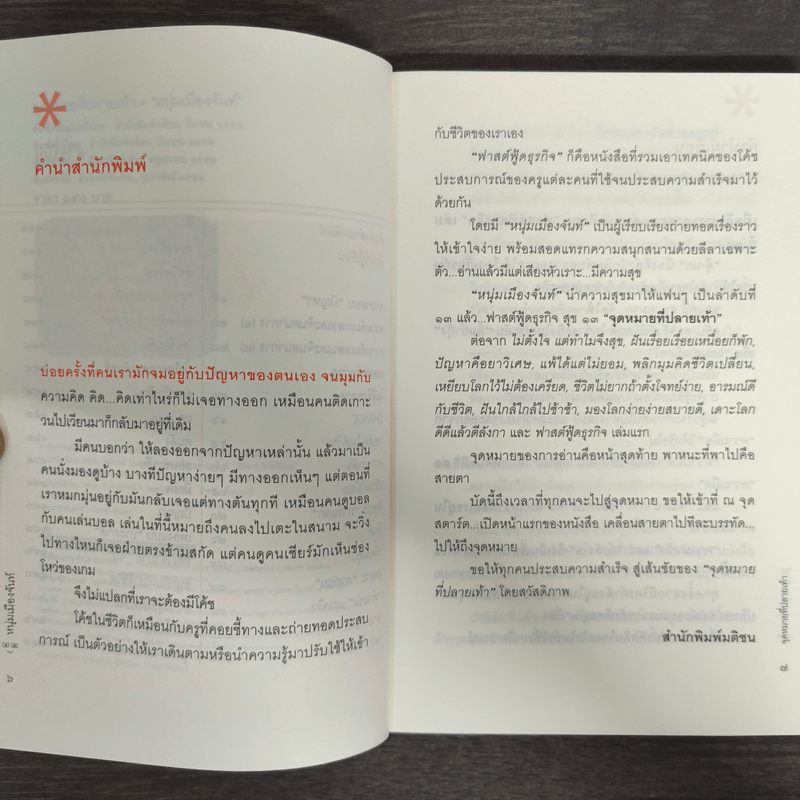 คำนำสำนักพิมพ์
บ่อยครั้งที่คนเรามักจมอยู่กับปัญหาของตนเอง จนมุมกับ
ความคิด คิด...คิดเท่าไหร่ก็ไม่เจอทางออก เหมือนคนติดเกาะ
วนไปเวียนมาก็กลับมาอยู่ที่เดิม
มีคนบอกว่า ให้ลองออกจากปัญหาเหล่านั้น แล้วมาเป็น
คนนั่งมองดูบ้าง บางทีปัญหาง่ายๆ มีทางออกเห็นๆ แต่ตอนที่
เราหมกมุ่นอยู่กับมันกลับเจอแต่ทางตันทุกที เหมือนคนดูบอล
กับคนเล่นบอล เล่นในที่นี้หมายถึงคนลงไปเตะในสนาม จะวิ่ง
ไปทางไหนก็เจอฝ่ายตรงข้ามสกัด แต่คนดูคนเชียร์มักเห็นช่อง
โหว่ของเกม
จึงไม่แปลกที่เราจะต้องมีโค้ช
โค้ชในชีวิตก็เหมือนกับครูที่คอยชี้ทางและถ่ายทอดประสบ
การณ์ เป็นตัวอย่างให้เราเดินตามหรือนำความรู้มาปรับใช้ให้เข้า
หนุ่มเมืองจันท์
๖
กับชีวิตของเราเอง
"ฟาสต์ฟู้ดธุรกิจ" ก็คือหนังสือที่รวมเอาเทคนิคของโค้ช
ประสบการณ์ของครูแต่ละคนที่ใช้จนประสบความสำเร็จมาไว้
ด้วยกัน
โดยมี "หนุ่มเมืองจันท์" เป็นผู้เรียบเรียงถ่ายทอดเรื่องราว
ให้เข้าใจง่าย พร้อมสอดแทรกความสนุกสนานด้วยลีลาเฉพาะ
ตัว...อ่านแล้วมีแต่เสียงหัวเราะ...มีความสุข
"หนุ่มเมืองจันท์" นำความสุขมาให้แฟนๆ เป็นลำดับที่
๑๓ แล้ว...ฟาสต์ฟู้ดธุรกิจ สุข ๑๓ "จุดหมายที่ปลายเท้า"
ต่อจาก ไม่ตั้งใจ แต่ทำไมจึงสุข, ฝันเรื่อยเรื่อยเหนื่อยก็พัก,
ปัญหาคือยาวิเศษ, แพ้ได้แต่ไม่ยอม, พลิกมุมคิดชีวิตเปลี่ยน,
เหยียบโลกไว้ไม่ต้องเครียด, ชีวิตไม่ยากถ้าตั้งโจทย์ง่าย, อารมณ์ดี
กับชีวิต, ฝันใกล้ใกล้ไปช้าช้า, มองโลกง่ายง่ายสบายดี, เดาะโลก
ดีดีแล้วตีลังกา และ ฟาสต์ฟู้ดธุรกิจ เล่มแรก
จุดหมายของการอ่านคือหน้าสุดท้าย พาหนะที่พาไปคือ
สายตา
บัดนี้ถึงเวลาที่ทุกคนจะไปสู่จุดหมาย ขอให้เข้าที่ ณ จุด
สตาร์ต...เปิดหน้าแรกของหนังสือ เคลื่อนสายตาไปทีละบรรทัด...
ไปให้ถึงจุดหมาย
ขอให้ทุกคนประสบความสำเร็จ สู่เส้นชัยของ "จุดหมาย
ที่ปลายเท้า" โดยสวัสดิภาพ
สำนักพิมพ์มติชน
จุดหมายที่ปลายเท้า
๗